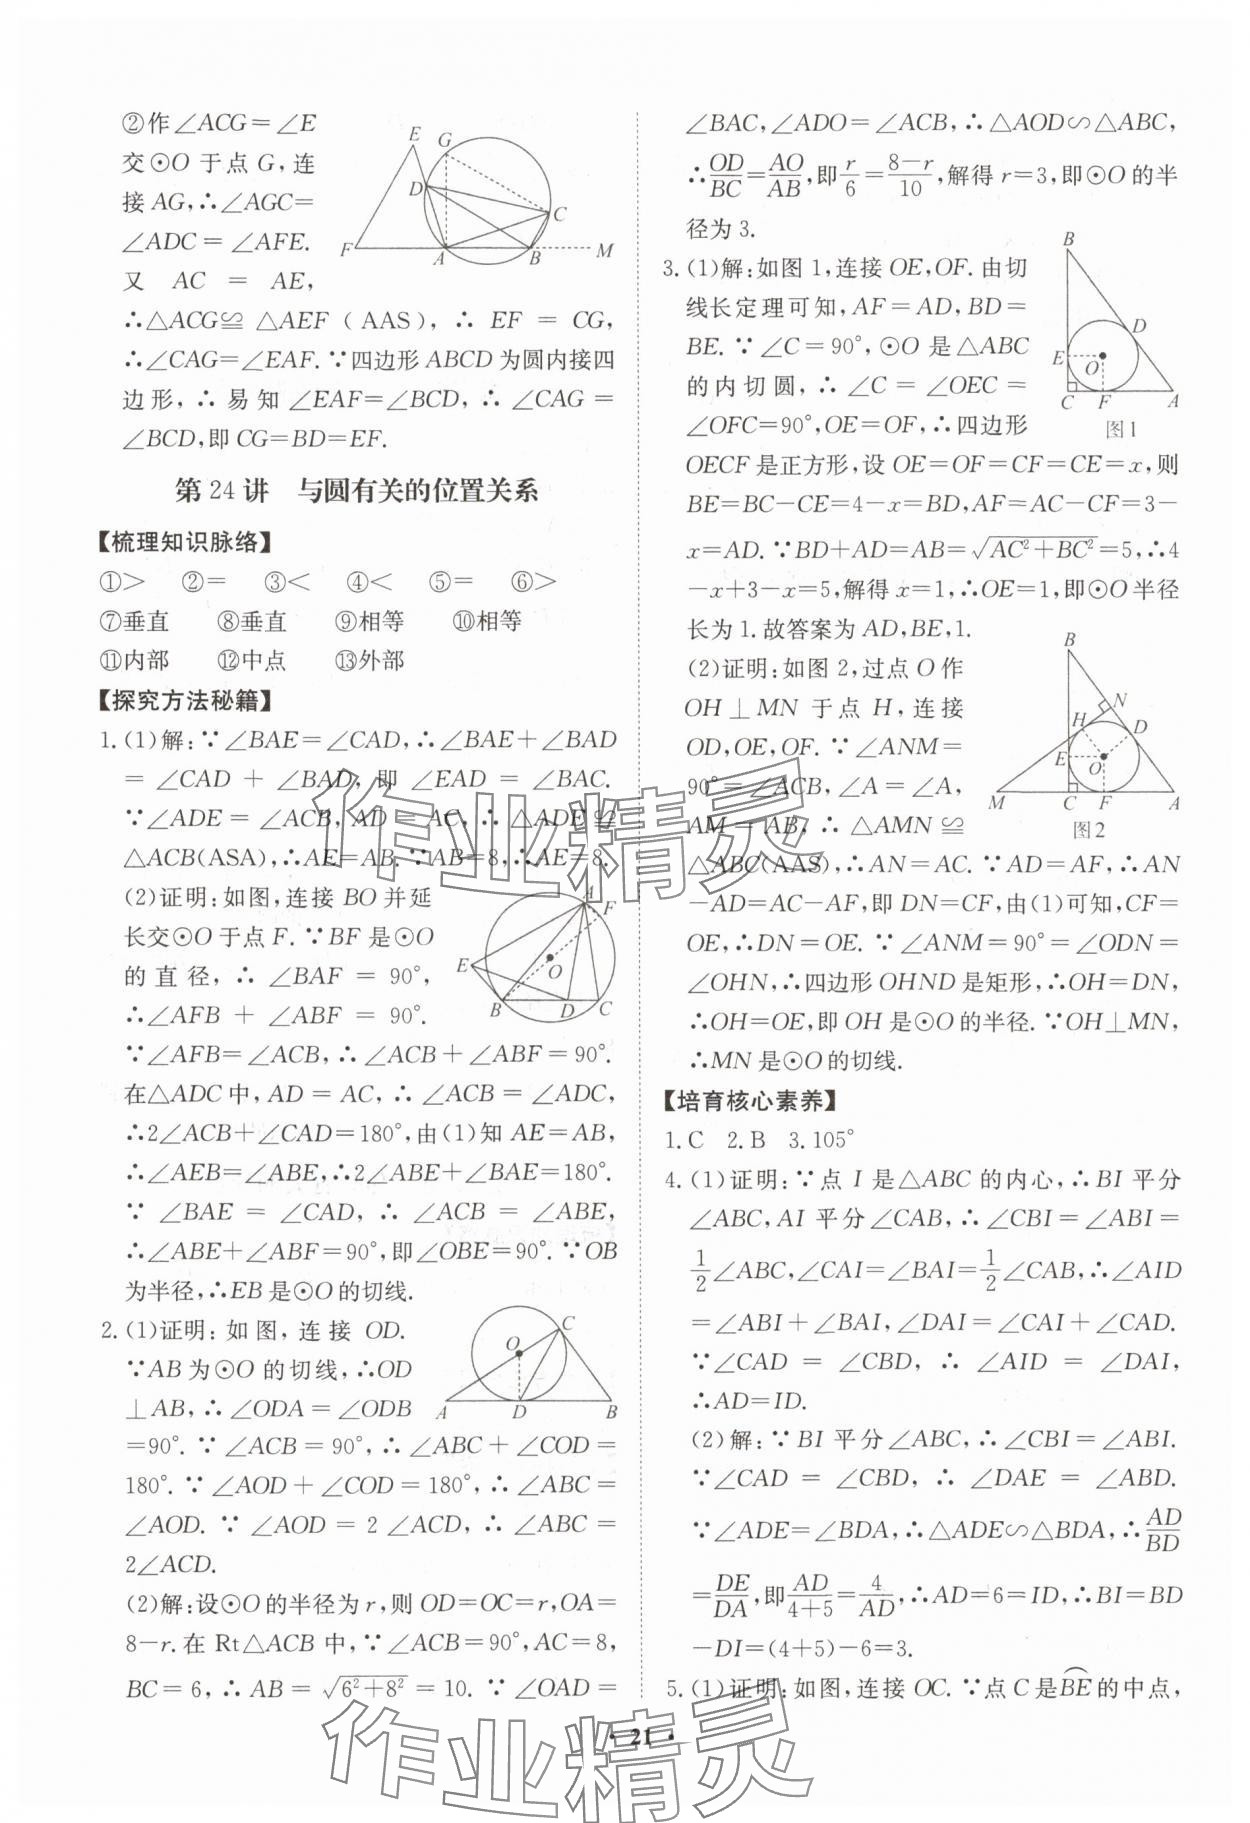 ②作∠ACG=∠E
交⊙O于点G,连
接AG,∴∠AGC=
∠ADC=∠AFE.
又 AC = AE,
∴△ACG≌△AEF(AAS),∴EF=CG,
∴∠CAG=∠EAF.∵四边形ABCD为圆内接四
边形,∴易知∠EAF=∠BCD,∴∠CAG=
∠BCD,即CG=BD=EF.
E G D C F A B M
第24讲 与圆有关的位置关系
【梳理知识脉络】
①> ②= ③< ④< ⑤= ⑥>
⑦垂直 ⑧垂直 ⑨相等 ⑩相等
⑪内部 ⑫中点 ⑬外部
【探究方法秘籍】
1.(1)解:∵∠BAE=∠CAD,∴∠BAE+∠BAD
=∠CAD+∠BAD,即∠EAD=∠BAC.
∵∠ADE=∠ACB,AD=AC,∴△ADE≌
△ACB(ASA),∴AE=AB.∵AB=8,∴AE=8.
(2)证明:如图,连接BO并延
长交⊙O于点F.∵BF是⊙O
的直径,∴∠BAF=90°,
∴∠AFB+∠ABF=90°.
A F E O B D C
∵∠AFB=∠ACB,∴∠ACB+∠ABF=90°.
在△ADC中,AD=AC,∴∠ACB=∠ADC,
∴2∠ACB+∠CAD=180°,由(1)知AE=AB,
∴∠AEB=∠ABE,∴2∠ABE+∠BAE=180°.
∵∠BAE=∠CAD,∴∠ACB=∠ABE,
∴∠ABE+∠ABF=90°,即∠OBE=90°.∵OB
为半径,∴EB是⊙O的切线.
2.(1)证明:如图,连接OD.
∵AB为⊙O的切线,∴OD
⊥AB,∴∠ODA=∠ODB
=90°.∵∠ACB=90°,∴∠ABC+∠COD=
180°.∵∠AOD+∠COD=180°,∴∠ABC=
∠AOD.∵∠AOD=2∠ACD,∴∠ABC=
2∠ACD.
C O A D B
(2)解:设⊙O的半径为r,则OD=OC=r,OA=
8-r.在Rt△ACB中,∵∠ACB=90°,AC=8,
BC=6,∴AB=√(6²+8²)=10.∵∠OAD=
∠BAC,∠ADO=∠ACB,∴△AOD∽△ABC,
∴OD/BC=AO/AB,即r/6=(8-r)/10,解得r=3,即⊙O的半
径为3.
3.(1)解:如图1,连接OE,OF.由切
线长定理可知,AF=AD,BD=
BE.∵∠C=90°,⊙O是△ABC
的内切圆,∴∠C=∠OEC=
∠OFC=90°,OE=OF,∴四边形
B D E O C F A
图1
OECF是正方形,设OE=OF=CF=CE=x,则
BE=BC-CE=4-x=BD,AF=AC-CF=3-
x=AD.∵BD+AD=AB=√(AC²+BC²)=5,∴4
-x+3-x=5,解得x=1,∴OE=1,即⊙O半径
长为1.故答案为AD,BE,1.
(2)证明:如图2,过点O作
OH⊥MN于点H,连接
OD,OE,OF.∵∠ANM=
90°=∠ACB,∠A=∠A,
AM=AB,∴△AMN≌
B N H D E O M C F A
图2
△ABC(AAS),∴AN=AC.∵AD=AF,∴AN
-AD=AC-AF,即DN=CF,由(1)可知,CF=
OE,∴DN=OE.∵∠ANM=90°=∠ODN=
∠OHN,∴四边形OHND是矩形,∴OH=DN,
∴OH=OE,即OH是⊙O的半径.∵OH⊥MN,
∴MN是⊙O的切线.
【培育核心素养】
1.C 2.B 3.105°
4.(1)证明:∵点I是△ABC的内心,∴BI平分
∠ABC,AI平分∠CAB,∴∠CBI=∠ABI=
1/2∠ABC,∠CAI=∠BAI=1/2∠CAB,∴∠AID
=∠ABI+∠BAI,∠DAI=∠CAI+∠CAD.
∵∠CAD=∠CBD,∴∠AID=∠DAI,
∴AD=ID.
(2)解:∵BI平分∠ABC,∴∠CBI=∠ABI.
∵∠CAD=∠CBD,∴∠DAE=∠ABD.
∵∠ADE=∠BDA,∴△ADE∽△BDA,∴AD/BD
=DE/DA,即AD/(4+5)=4/AD,∴AD=6=ID,∴BI=BD
-DI=(4+5)-6=3.
5.(1)证明:如图,连接OC.∵点C是B͡E的中点,
·21·
作业精灵
作业精灵